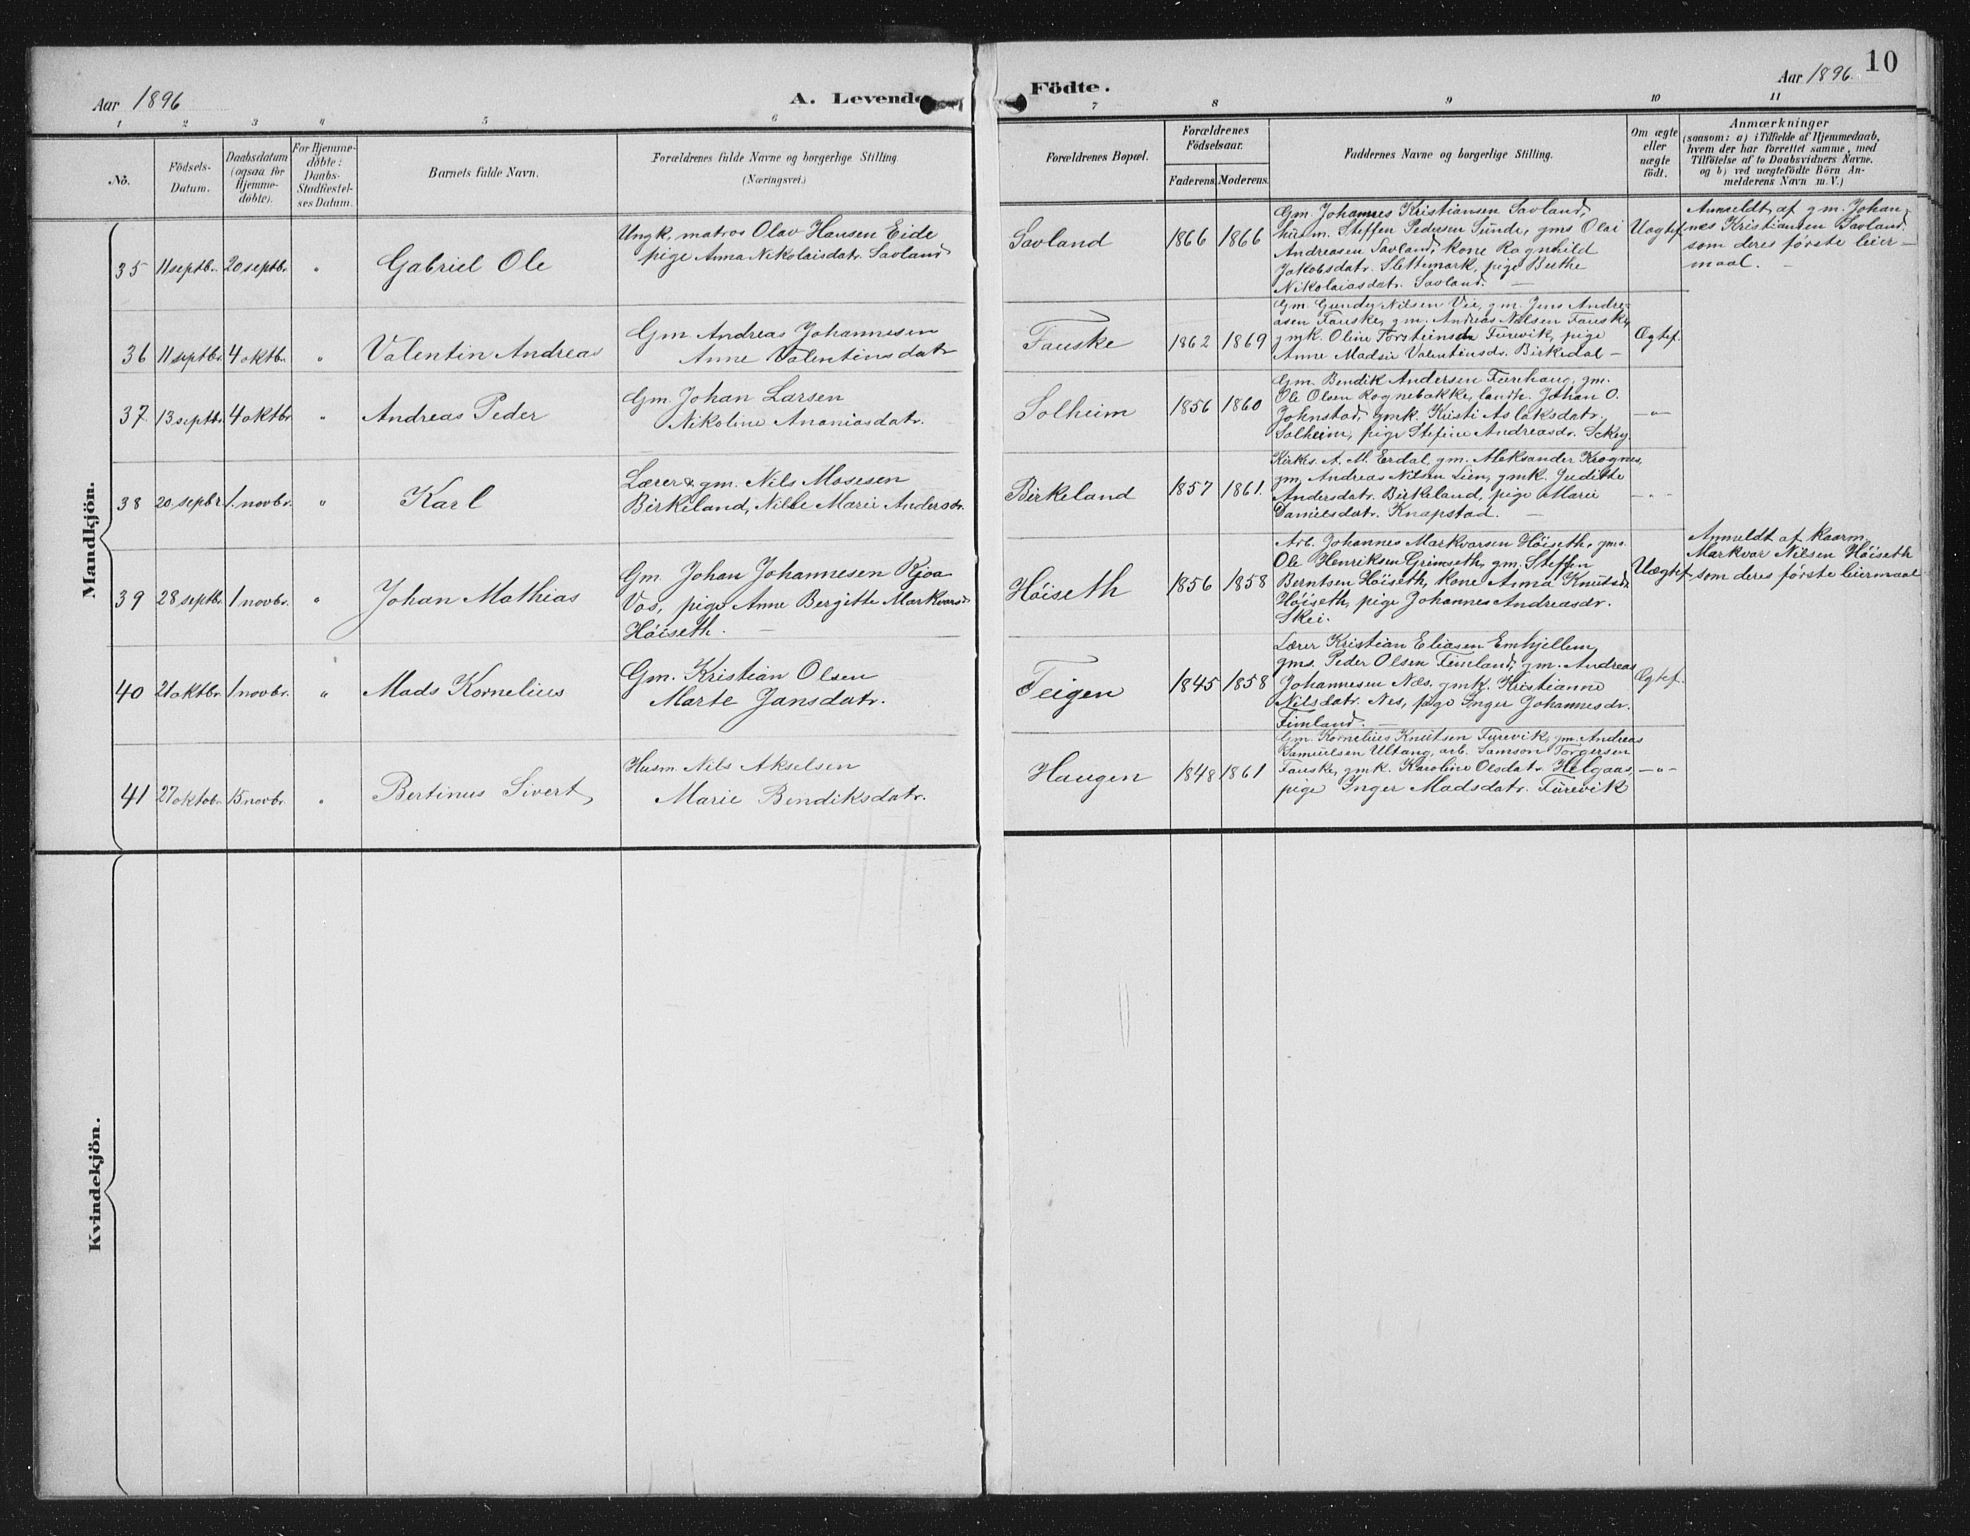 10
Aar 1896
A. Levende
Födte.
Aar 1896
1 2 3 4 5 6 7 8 9 10 11
No.
Födsels-
Datum.
Daabsdatum
(ogsaa for
Hjemme-
döbte).
For Hjemme-
döbte:
Daabs-
Stadfæstel-
ses Datum.
Barnets fulde Navn.
Forældrenes fulde Navne og borgerlige Stilling.
(Næringsvei.)
Forældrenes Bopæl.
Forældrenes
Födselsaar.
Faderens. Moderens.
Faddernes Navne og borgerlige Stilling.
Om ægte
eller
uægte
födt.
Anmærkninger
(saasom: a) i Tilfælde af Hjemmedaab,
hvem der har forrettet samme, med
Tilföielse af to Daabsvidners Navne,
og b) ved uægtefödte Börn An-
melderens Navn m. V.)
Mandkjön.
35 11 septbr. 20 septbr. " Gabriel Ole
Ungk, matros Olav Hansen Eide
pige Anna Nikolaisdatr. Savland
Savland 1866 1866
Gm. Johannes Kristiansen Savland,
husm. Steffen Pedersen Sunde, gms Olai
Andreasen Savland, kone Ragnhild
Jakobsdatr. Slettemark, pige Berthe
Nikolaiasdatr. Savland. —
Uægtef.
Anmeldt af gm. Johan-
nes Kristiansen Savland
som deres første leier-
maal. —
36 11 septbr. 4 oktbr. " Valentin Andreas
Gm Andreas Johannesen
Anne Valentinsdatr
Fauske 1862 1869
Gm. Gundy Nilsen Vie, gm. Jens Andre-
asen Fauske, gm. Andreas Nilsen Fauske,
gmk. Oline Torsteinsdr Furevik, pige
Anne Madsie Valentinsds. Birkedal —
Ægtef.
37 13 septbr. 4 oktbr " Andreas Peder
Gm. Johan Larsen
Nikoline Ananiasdatr.
Solheim 1856 1860
Gm. Bendik Andersen Furehaug, gm.
Ole Olsen Rognebakke, landh. Johan O.
Johnstad, gmk. Kristi Aslaksdatr.
Solheim, pige Stefine Andreasdr. Schey.
—"—
38 20 sepbr 1. novbr. " Karl
Lærer & gm. Nils Mosesen
Birkeland, Nille Marie Andersdr.
Birkeland 1857 1861.
Kirkes. A. M. Erdal, gm. Aleksander Krognes,
gm, Andreas Nilsen Lien, gmk. Judithe
Andersdatr. Birkeland, pige Marie
Danielsdatr. Knapstad. —
—"—
39 28 septbr. 1 novbr. " Johan Mathias
Gm. Johan Johannesen Rjoa
Vos, pige Anne Bergitte Markvarsd.
Høiseth. —
Høiseth 1856 1858
Arb. Johannes Markvarsen Høiseth, gms.
Ole Henriksen Grimseth, gm. Steffen
Berntsen Høiseth, kone Anna Knutsd.
Høiseth, pige Johannes Andreasdr.
Skei.
Uægtef.
Anmeldt af kaarm.
Markvar Nilsen Høiseth
som deres første leiermaal
40 21 oktbr. 1 novbr. " Mads Kornelius
Gm. Kristian Olsen
Marte Jansdatr.
Feigen 1845 1858
Lærer Kristian Eliasen Emhjellen,
gms. Peder Olsen Fimland, gm. Andreas
Johannesen Næs. gmk. Kristianne
Nilsdatr. Nes, pige Inger Johannesdr.
Fimland. —
Ægtef.
41 27 oktobr. 15 novbr. " Bertinus Sivert
Husm. Nils Akselsen
Marie Bendiksdatr.
Haugen 1848 1861
Gm. Kornelius Knutsen Furevik, gm. Andreas
Samuelsen Ultang, arb. Samson Torgersen
Fauske, gmk. Karoline Olsdatr. Helgaas,
pige Inger Madsdatr. Furevik
—"—
Kvindekjön.